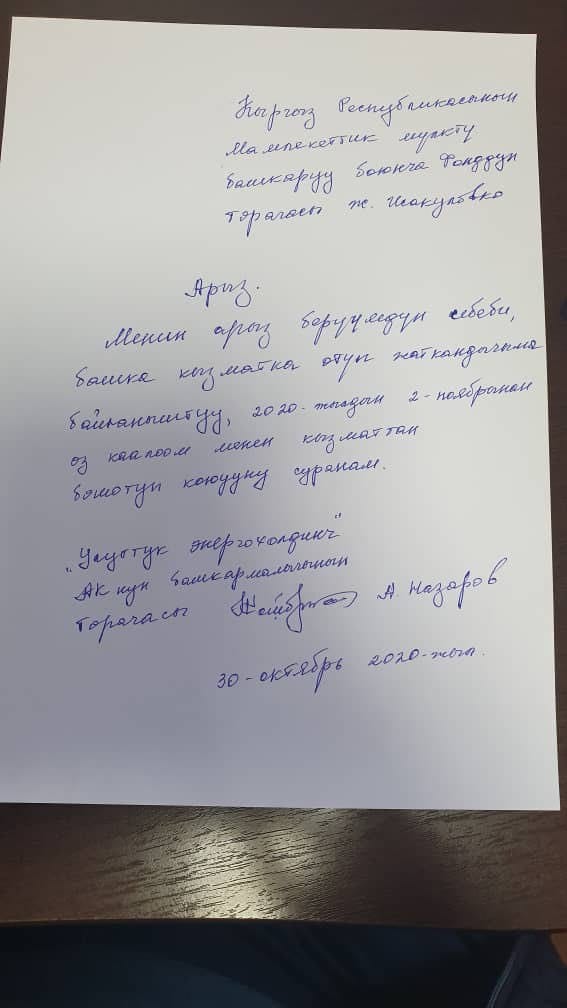 Кыргыз Республикасынын
Мамлекеттик мүлктү
башкаруу боюнча Фонддун
төрагасы Ж. Исакуловко
Арыз.
Менин арыз беруумдун себеби,
башка кызматка өтүп жаткандыгыма
байланыштуу, 2020-жылдын 2-ноябрынан
өз каалоом менен кызматтан
бошотуп коюууну суранам.
"Улуттук энергохолдинг"
АК нун башкармалыгынын
төрагасы А. Назаров
30-октябрь 2020-жыл.